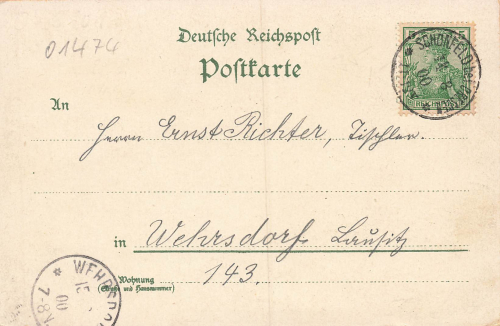 01474
Deutsche Reichspost
Postkarte
An
Herrn Ernst Richter, Tischler.
in Wehrsdorf Lausitz
Wohnung
(Straße und Hausnummer)
143.
SCHÖNFELD
WEHRSDORF
00
7-8